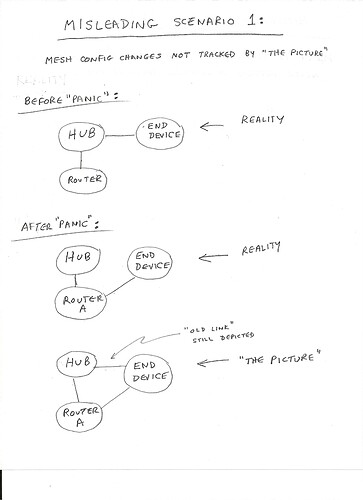 MISLEADING SCENARIO 1:
MESH CONFIG CHANGES NOT TRACKED BY "THE PICTURE"
BEFORE "PANIC":
HUB
END
DEVICE
REALITY
ROUTER
AFTER "PANIC":
HUB
END
DEVICE
REALITY
ROUTER
A
"OLD LINK"
STILL DEPICTED
HUB
END
DEVICE
"THE PICTURE"
ROUTER
A